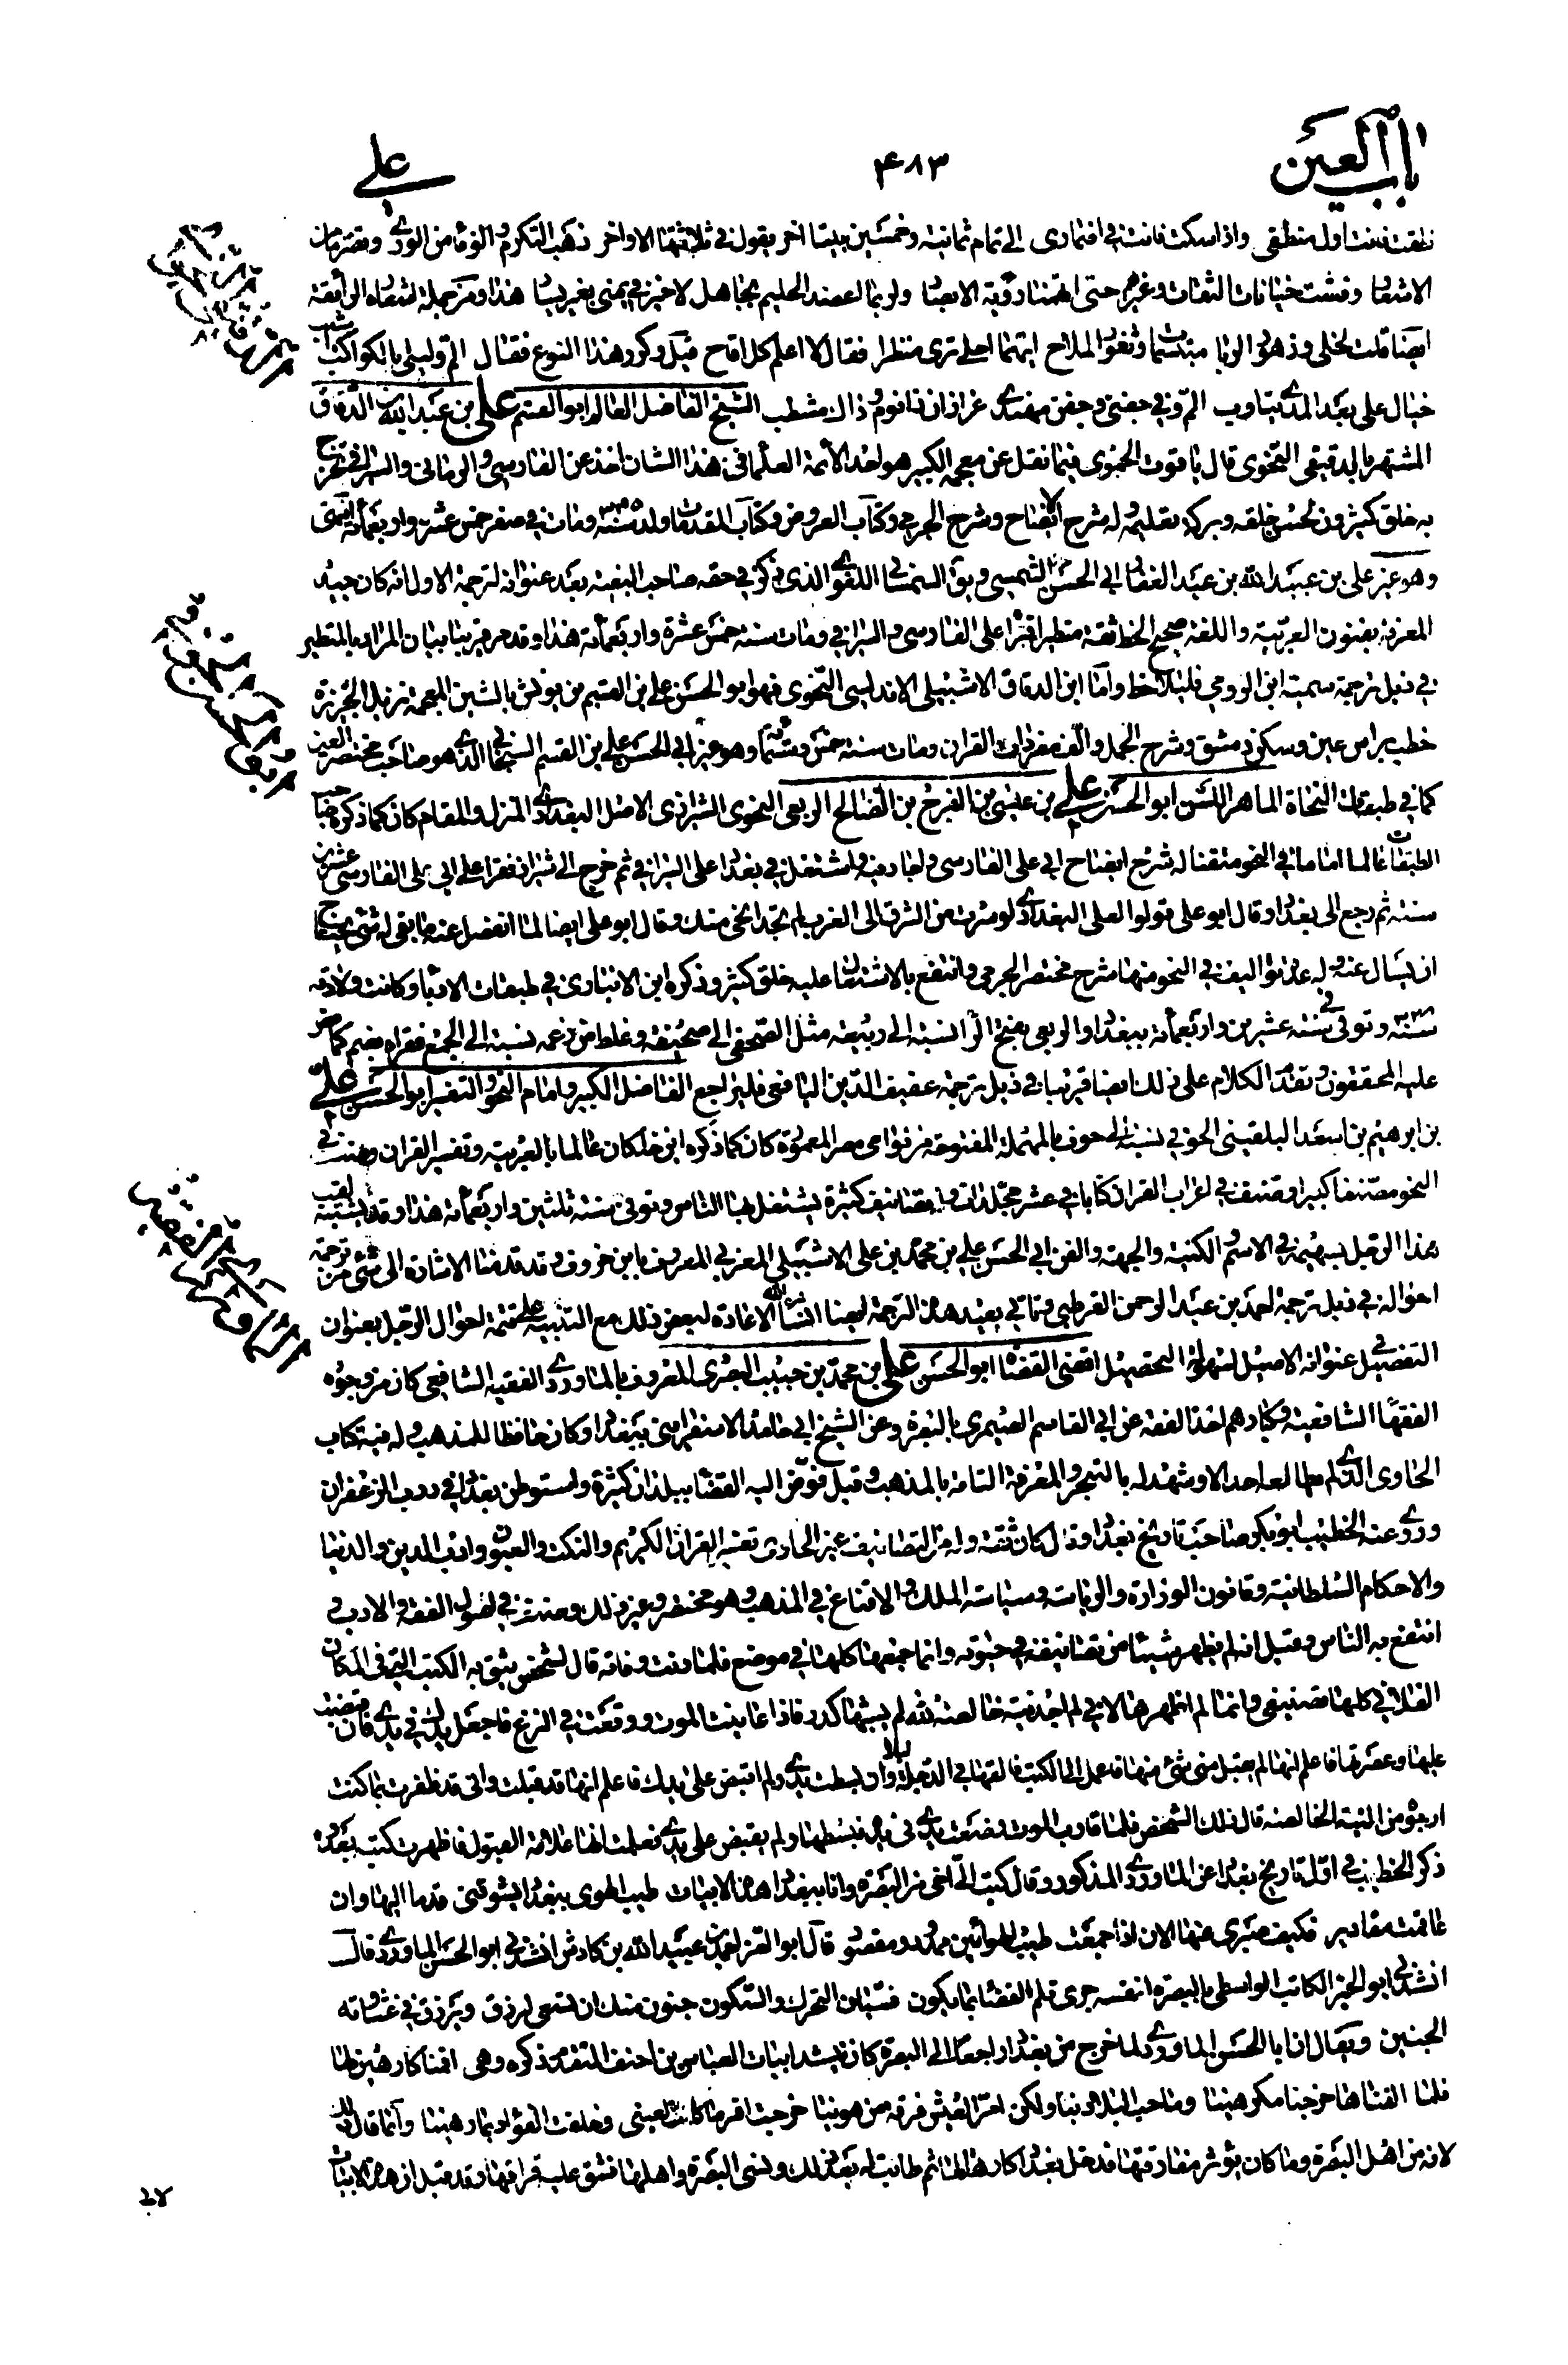 باب العين
۴۸۳
علي
نطقت فانت اول منطقي واذا سكت فانت في اضماري الى تمام ثمانية وخمسين بيتا اخر يقول في ثلاثتها الاواخر ذهب التكرم والوفا من الورى وتصرما من
الاشعار وفشت خيانات الثقات وغيرهم حتى اتهمنا رؤية الابصار ولربما اعتضد الحليم بجاهل لا خير في يمنى بغير يسار هذا ومن جملة اشعاره الرائقة
ايضا قلت لخلي وزهور الربا مبتسمات وثغور الملاح ايهما احلى ترى منظرا فقال لا اعلم كل اقاح قيل وكرر هذا النوع فقال الم وليلى بالكواكب اشيب
خيال على بعد المدى يتاوب الم وفي جفني وجفن مهندي غراران ذا نوم وذاك مشطب الشيخ الفاضل العالم ابو القسم علي بن عبد الله الدقاق
المشتهر بالدقيقي النحوي قال ياقوت الحموي فيما نقل عن معجمه الكبير هو احد الأئمة العلماء في هذا الشان اخذ عن الفارسي والرماني والسيرافي تخرج
به خلق كثيرون لحسن خلقه وبركة تعليمه وله شرح الايضاح وشرح الجرمي وكتاب العروض وكتاب المقدمات ولد سنة ۳۴۵ ومات في صفر خمس عشرة واربعمائة انتهى
وهو غير علي بن عبيد الله بن عبد الغفار ابي الحسن الشمسي ويق السمساني اللغوي الذي ذكر في حقه صاحب البغية بعد عنوانه لترجمة الاول انه كان جيد
المعرفة بفنون العربية واللغة صحيح الخط ثقة متطيرا قرأ على الفارسي والسيرافي ومات سنة خمس عشرة واربعمائة هذا وقد مر قريبا بيان المراد بالمتطير
في ذيل ترجمة سميه ابن الرومي فليلاحظ واما ابن الدقاق الاشبيلي الاندلسي النحوي فهو ابو الحسن علي بن القسم بن يونش بالشين المعجمة نزيل الجزيرة
خطب براس عين وسكن دمشق وشرح الجمل والف مفردات القران ومات سنة خمس وستمأة وهو غير ابي الحسن علي بن القسم السنجاني الذي هو صاحب مختصر العين
كما في طبقات النحاة الماهر اللسن ابو الحسن علي بن عيسى بن الفرج بن الصالح الربعي النحوي الشيرازي الاصل البغدادي المنزل والمقام كان كما ذكره صاحب
الطبقات عالما اماما في النحو متقنا له شرح ايضاح ابي علي الفارسي واجاد فيه واشتغل في بغداد على السيرافي ثم خرج الى شيراز فقرا على ابي علي الفارسي عشرين
سنة ثم رجع الى بغداد وقال ابو علي قولوا لعلي البغدادي لو سرت من الشرق الى الغرب لم تجد انحى منك وقال ابو علي ايضا لما انفصل عنه ما بقي له شئ يحتاج
ان يسال عنه وله عدة تواليف في النحو منها شرح مختصر الجرمي وانتفع بالاشتغال عليه خلق كثير وذكره ابن الانباري في طبقات الادباء وكانت ولادته
سنة ۳۲۸ وتوفي في سنة عشرين واربعمأة ببغداد والربعي بفتح الرا نسبة الى ربيعة مثل الصحفي الى صحيفة وغلط من زعمه نسبة الى الجمع فقراه بضم كما نص
عليه المحققون وتقدم الكلام على ذلك ايضا قريبا في ذيل ترجمة عفيف الدين اليافعي فليراجع الفاضل الكبير وامام النحو والتفسير ابو الحسن علي
بن ابرهيم بن سعد البلقيني الحوفي نسبة الى حوف بالمهملة المفتوحة من نواحي مصر المعمورة كان كما ذكره ابن خلكان عالما بالعربية وتفسير القران وصنف في
النحو مصنفا كبيرا وصنف في اعراب القران كتابا في عشر مجلدات وله تصانيف كثيرة يشتغل بها الناس وتوفى سنة ثلثين واربعمأة هذا وقد يشتبه لقب
هذا الرجل بسهيمه في الاسم والكنية والجهة والفن ابي الحسن علي بن محمد بن علي الاشبيلي المغربي المعروف بابن خروف وقد قدمنا الاشارة الى شئ من ترجمة
احواله في ذيل ترجمة احمد بن عبد الرحمن القرطبي وياتي بعيد هذه الترجمة ايضا انشاء الله الاعادة لبعض ذلك مع التنبيه على تتمة احوال الرجل بعنوان
التفصيل عنوانه الاصيل لسهولة التحصيل اقضى القضاة ابو الحسن علي بن محمد بن حبيب البصري المعروف بالماوردي الفقيه الشافعي كان من وجوه
الفقهاء الشافعية وكبارهم اخذ الفقه عن ابي القاسم الصيمري بالبصرة وعن الشيخ ابي حامد الاسفرايني ببغداد وكان حافظا للمذهب وله فيه كتاب
الحاوي الذي لم يطالعه احد الا وشهد له بالتبحر والمعرفة التامة بالمذهب وقيل فوض اليه القضاء ببلدان كثيرة واستوطن بغداد في درب الزعفران
وروى عنه الخطيب ابو بكر صاحب تاريخ بغداد وقال كان ثقة وله من التصانيف غير الحاوي تفسير القران الكريم والنكت والعيون وادب الدين والدنيا
والاحكام السلطانية وقانون الوزارة والرياسة وسياسة الملك والاقناع في المذهب وهو مختصر وغير ذلك وصنف في اصول الفقه والادب و
انتفع به الناس وقيل انه لم يظهر شيئا من تصانيفه في حيوته وانما جمعها كلها في موضع فلما دنت وفاته قال لشخص يثق به الكتب التي في المكان
الفلاني كلها تصنيفي وانما لم اظهرها لاني لم اجد نية خالصة لله لم يشبها كدر فاذا عاينت الموت ووقعت في النزع فاجعل يدك في يدي فان قبضت
عليها وعصرتها فاعلم انها لم يقبل مني شئ منها فاعمل الى الكتب فالقها في الدجلة ليلا وان بسطت يدي ولم اقبض على يدك فاعلم انها قد قبلت واني قد ظفرت بما كنت
ارجوه من النية الخالصة قال ذلك الشخص فلما قارب الموت وضعت يدي في يده فبسطها ولم يقبض على يدي فعلمت انها علامة القبول فاظهرت كتبه بعده
ذكر الخطيب في اول تاريخ بغداد عن الماوردي المذكور وقال كتب الي اخي من البصرة وانا ببغداد هذه الابيات طيب الهوى ببغداد يشوقني قدما اليها وان
عاقت مقادير فكيف صبري عنها الان اذ جمعت طيب الهوائين ممدود ومقصور قال ابو العز احمد بن عبيد الله بن كادش انشدني ابو الحسن الماوردي قال
انشدني ابو الخير الكاتب الواسطي بالبصرة لنفسه جرى قلم القضاء بما يكون فسيان التحرك والسكون جنون منك ان تسعى لرزق ويرزق في غشاوته
الجنين ويقال ان ابا الحسن الماوردي لما خرج من بغداد راجعا الى البصرة كان ينشد ابيات العباس بن احنف المتقدم ذكره وهي اقمنا كارهين لها
فلما الفناها خرجنا مكرهينا وما حب البلاد بنا ولكن امر العيش فرقة من هوينا خرجت اقر ما كانت لعيني وخلفت الفؤاد بها رهينا وانما قال ذلك
لانه من اهل البصرة وما كان يؤثر مفارقتها فدخل بغداد كارها لها ثم طابت له بعد ذلك ونسي البصرة واهلها فشق عليه فراقها وقد قيل ان هذه الابيات